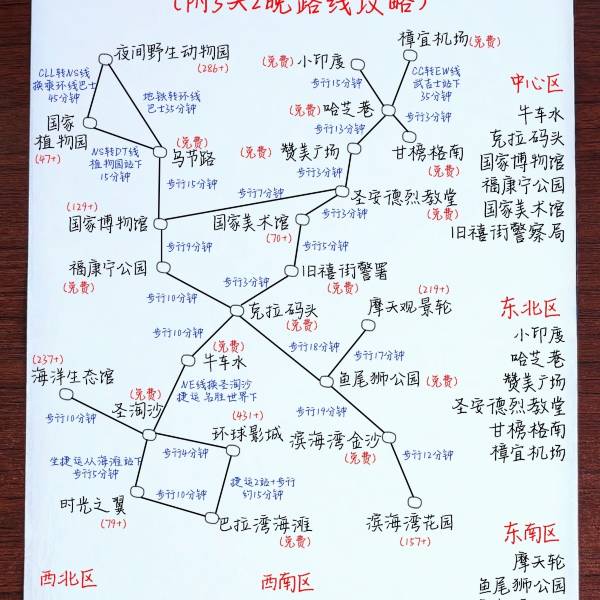 (附3天2晚路线攻略)
夜间野生动物园
(286+)
(免费)
小印度
樟宜机场
(免费)
CLL转NS线
换乘环线巴士
45分钟
地铁转环线
巴士35分钟
步行15分钟
CG转EW线
武吉士站下
35分钟
中心区
国家
植物园
(47+)
(免费)
哈芝巷
步行3分钟
牛车水
NS转DT线
植物园站下
15分钟
(免费)
乌节路
步行13分钟
(免费)
赞美广场
甘榜格南
(免费)
克拉码头
国家博物馆
步行15分钟
步行7分钟
步行3分钟
福康宁公园
圣安德烈教堂
(免费)
国家美术馆
旧禧街警察局
(129+)
国家博物馆
国家美术馆
(70+)
步行3分钟
步行9分钟
步行5分钟
福康宁公园
(免费)
步行3分钟
旧禧街警署
(免费)
(219+)
摩天观景轮
步行10分钟
克拉码头
(免费)
东北区
小印度
步行10分钟
步行18分钟
步行17分钟
哈芝巷
(237+)
海洋生态馆
(免费)
牛车水
鱼尾狮公园
(免费)
赞美广场
NE线换圣淘沙
捷运 名胜世界下
圣安德烈教堂
步行10分钟
(免费)
圣淘沙
(431+)
环球影城
步行19分钟
滨海湾金沙
(免费)
甘榜格南
樟宜机场
坐捷运从海滩站下
步行5分钟
步行4分钟
步行12分钟
捷运2站+步行
约15分钟
时光之翼
(79+)
步行10分钟
巴拉湾海滩
(免费)
滨海湾花园
(157+)
东南区
摩天轮
西北区
西南区
鱼尾狮公园